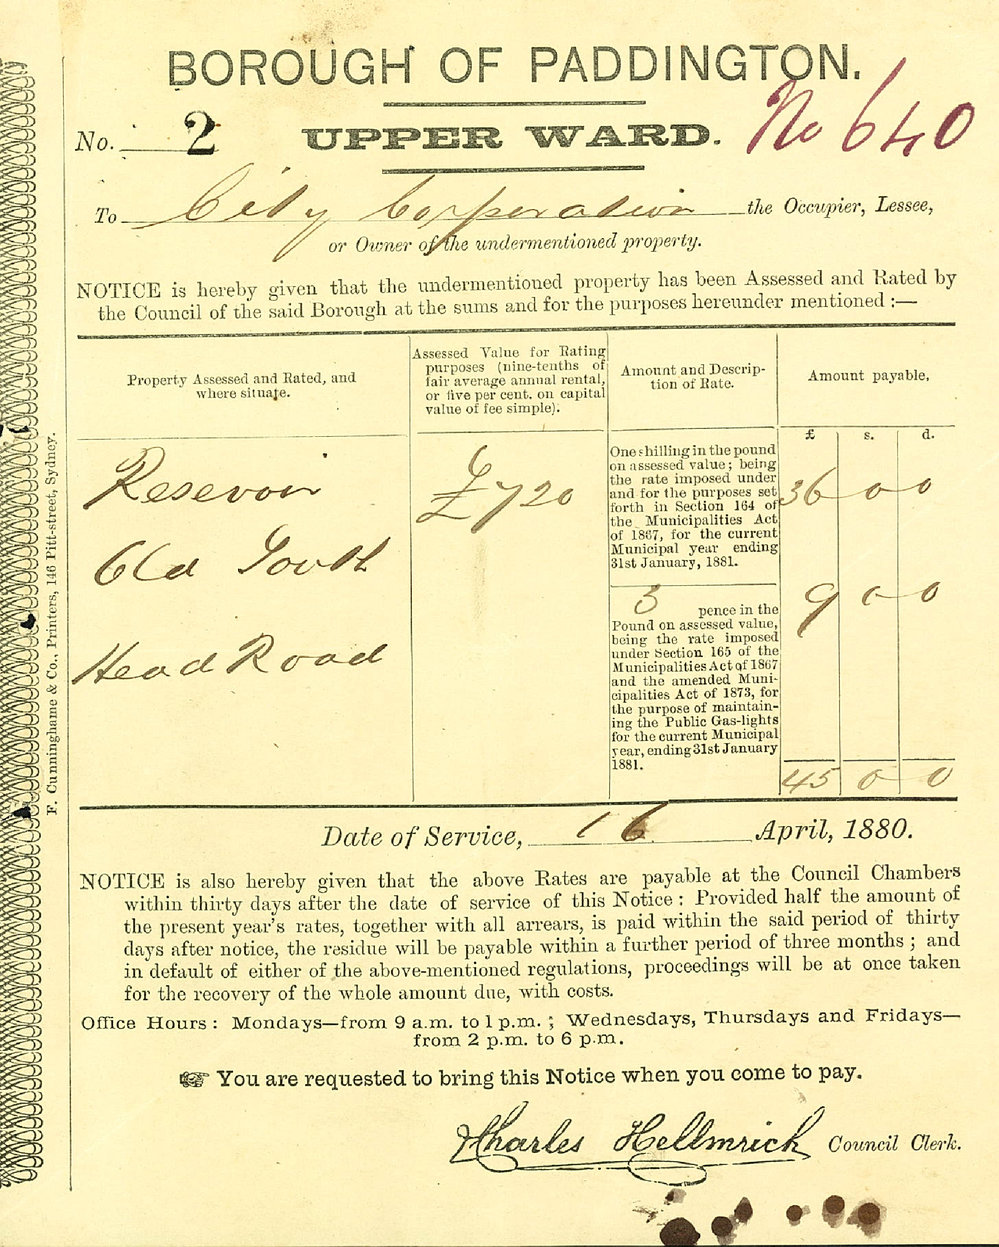 BOROUGH OF PADDINGTON.
No. 2 UPPER WARD. No 640
To City Corporation the Occupier, Lessee,
or Owner of the undermentioned property.
NOTICE is hereby given that the undermentioned property has been Assessed and Rated by
the Council of the said Borough at the sums and for the purposes hereunder mentioned :—
Property Assessed and Rated, and
where situate.
Assessed Value for Rating
purposes (nine-tenths of
fair average annual rental,
or five per cent. on capital
value of fee simple).
Amount and Descrip-
tion of Rate.
Amount payable,
£ s. d.
Resevoir
Old South
Head Road
£720
One shilling in the pound
on assessed value; being
the rate imposed under
and for the purposes set
forth in Section 164 of
the Municipalities Act
of 1867, for the current
Municipal year ending
31st January, 1881.
36 0 0
3 pence in the
Pound on assessed value,
being the rate imposed
under Section 165 of the
Municipalities Act of 1867
and the amended Muni-
cipalities Act of 1873, for
the purpose of maintain-
ing the Public Gas-lights
for the current Municipal
year, ending 31st January
1881.
9 0 0
45 0 0
F. Cunninghame & Co., Printers, 146 Pitt-street, Sydney.
Date of Service, 16 April, 1880.
NOTICE is also hereby given that the above Rates are payable at the Council Chambers
within thirty days after the date of service of this Notice : Provided half the amount of
the present year's rates, together with all arrears, is paid within the said period of thirty
days after notice, the residue will be payable within a further period of three months ; and
in default of either of the above-mentioned regulations, proceedings will be at once taken
for the recovery of the whole amount due, with costs.
Office Hours : Mondays—from 9 a.m. to 1 p.m. ; Wednesdays, Thursdays and Fridays—
from 2 p.m. to 6 p.m.
☞ You are requested to bring this Notice when you come to pay.
Charles Hellmrich Council Clerk.